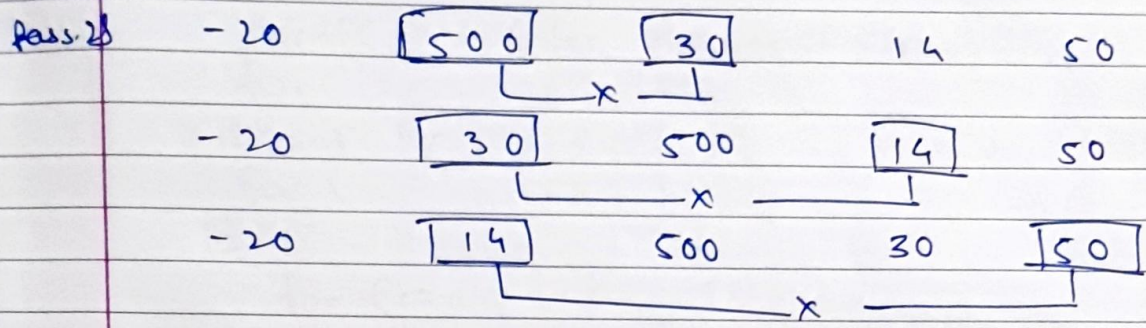 Pass.2) -20 500 30 14 50
x
-20 30 500 14 50
x
-20 14 500 30 50
x